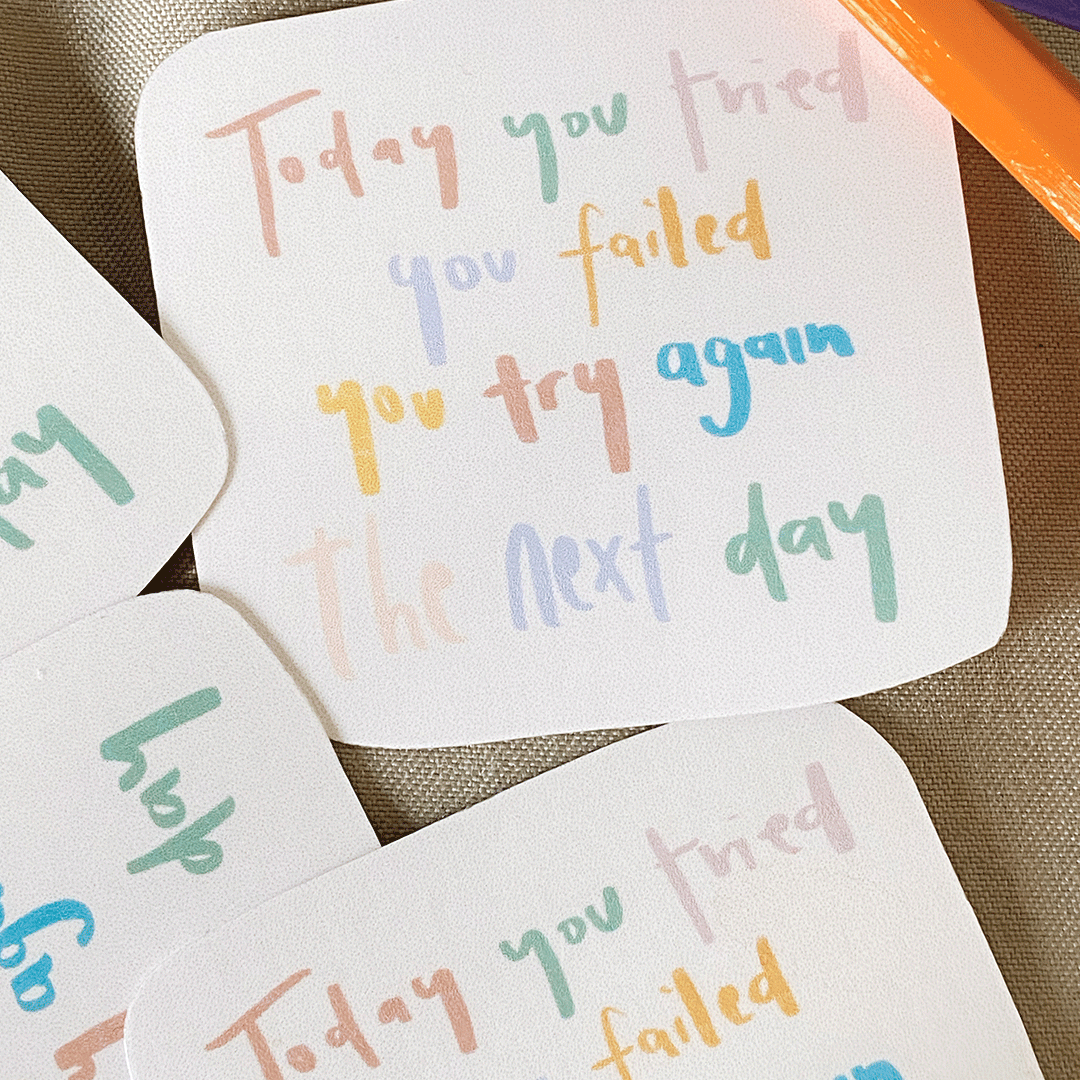 Today you tried
you failed
you try again
the next day
ay
day
ag
Today you tried
failed